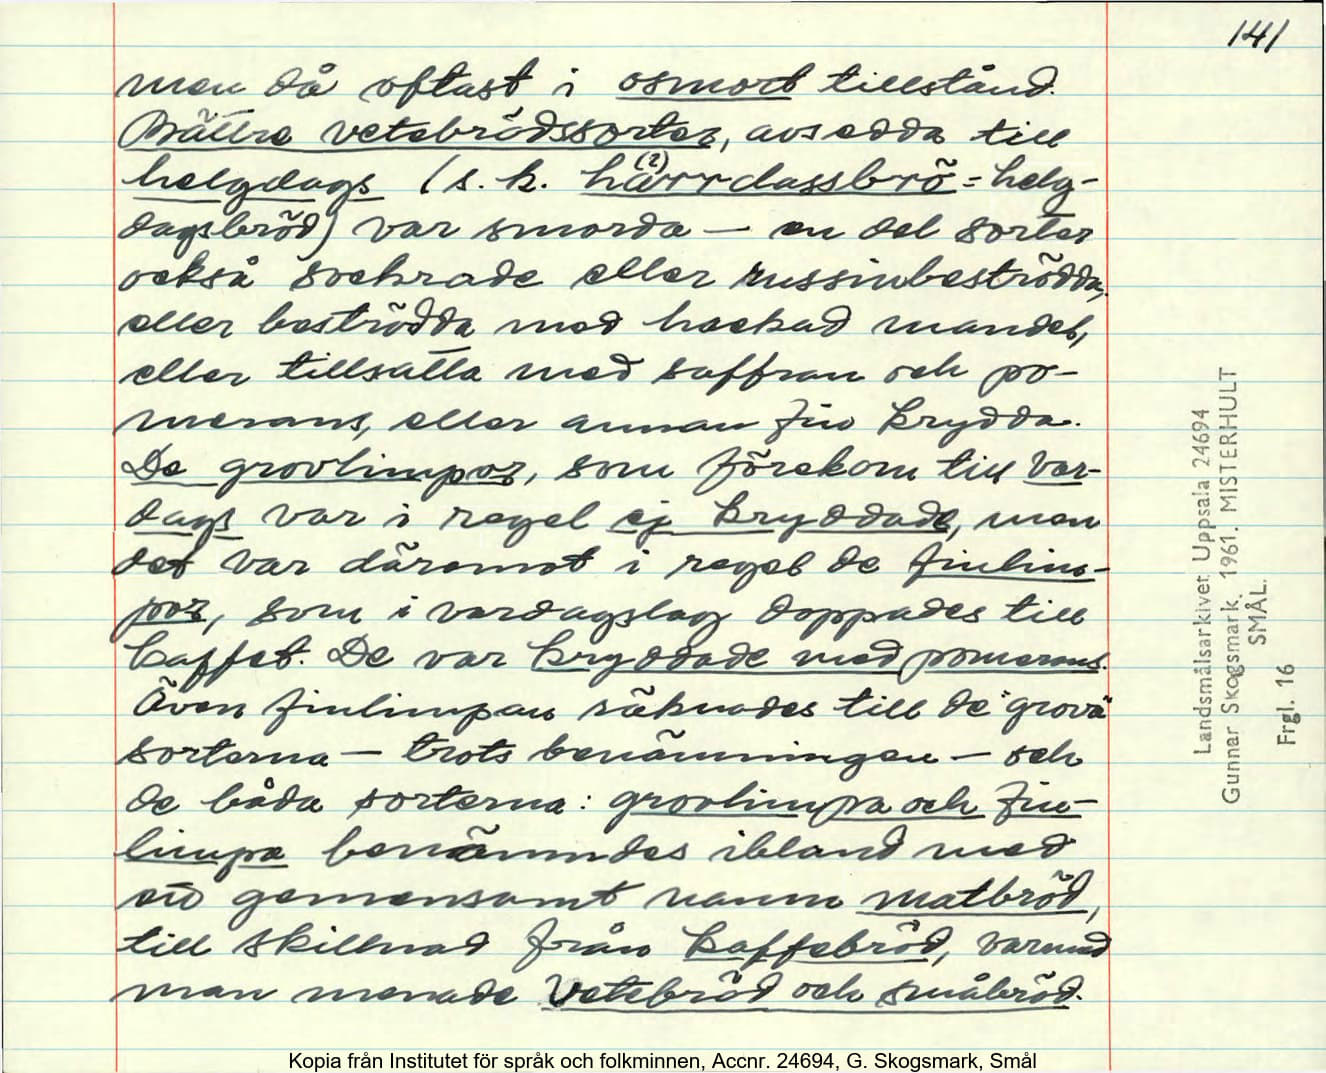 141
men då oftast i osmort tillstånd.
Bättre vetebrödssorter, avsedda till
helgdags (s.k. härrdassbrö = helg-
(2)
dagsbröd) var smorda — en del sorter
också sockrade eller russinbeströdda,
eller beströdda med hackad mandel,
eller tillsatta med saffran och po-
merans, eller annan fin krydda.
De grovlimpor, som förekom till var-
dags var i regel ej kryddade, men
det var däremot i regel de finlim-
por, som i vardagslag doppades till
kaffet. De var kryddade med pomerans.
Även finlimpan räknades till de "grova"
sorterna — trots benämningen — och
de båda sorterna: grovlimpa och fin-
limpa benämndes ibland med
ett gemensamt namn matbröd,
till skillnad från kaffebröd, varmed
man menade vetebröd och småbröd.
Landsmålsarkivet Uppsala 24694
Gunnar Skogsmark. 1961. MISTERHULT
SMÅL.
Frgl. 16
Kopia från Institutet för språk och folkminnen, Accnr. 24694, G. Skogsmark, Smål